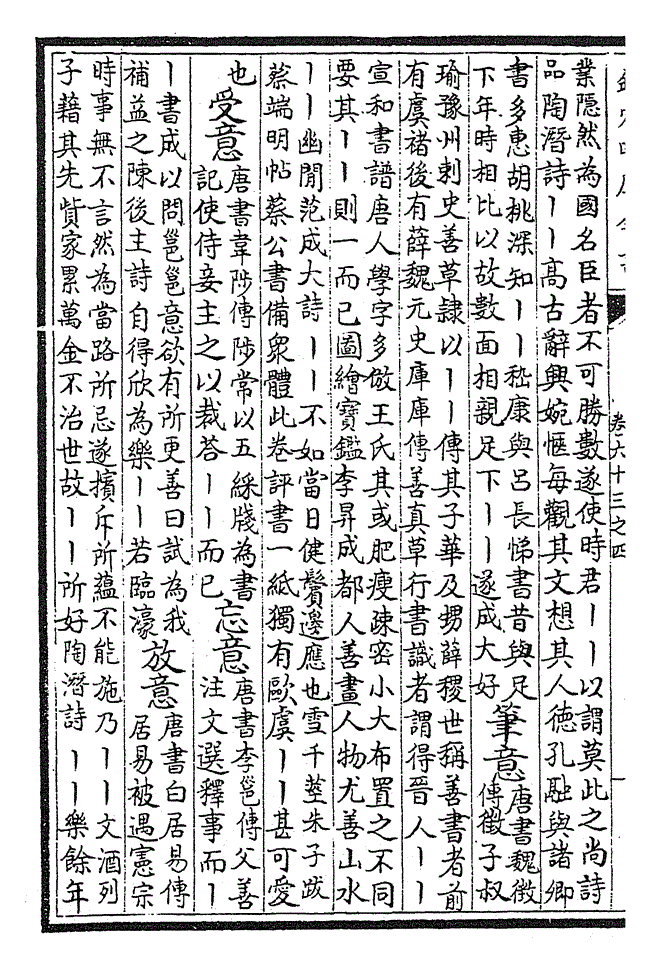 欽定四庫全書
卷六十三之四
業隱然為國名臣者不可勝數遂使時君丨丨以謂莫此之尚詩
品陶潛詩丨丨高古辭興婉愜每觀其文想其人德孔融與諸卿
書多惠胡桃深知丨丨嵇康與呂長悌書昔與足
下年時相比以故數面相親足下丨丨遂成大好
筆意
唐書魏徵
傳徵子叔
瑜豫州刺史善草隸以丨丨傳其子華及甥薛稷世稱善書者前
有虞褚後有薛魏元史庫庫傳善真草行書識者謂得晉人丨丨
宣和書譜唐人學字多倣王氏其或肥瘦疎密小大布置之不同
要其丨丨則一而已圖繪寶鑑李昇成都人善畫人物尤善山水
丨丨幽閒范成大詩丨丨不如當日健鬢邊應也雪千莖朱子跋
蔡端明帖蔡公書備衆體此卷評書一紙獨有歐虞丨丨甚可愛
也
受意
唐書韋陟傳陟常以五綵牋為書
記使侍妾主之以裁荅丨丨而已
忘意
唐書李邕傳父善
注文選釋事而丨
丨書成以問邕邕意欲有所更善曰試為我
補益之陳後主詩自得欣為樂丨丨若臨濠
放意
唐書白居易傳
居易被遇憲宗
時事無不言然為當路所忌遂擯斥所蘊不能施乃丨丨文酒列
子藉其先貲家累萬金不治世故丨丨所好陶潛詩丨丨樂餘年